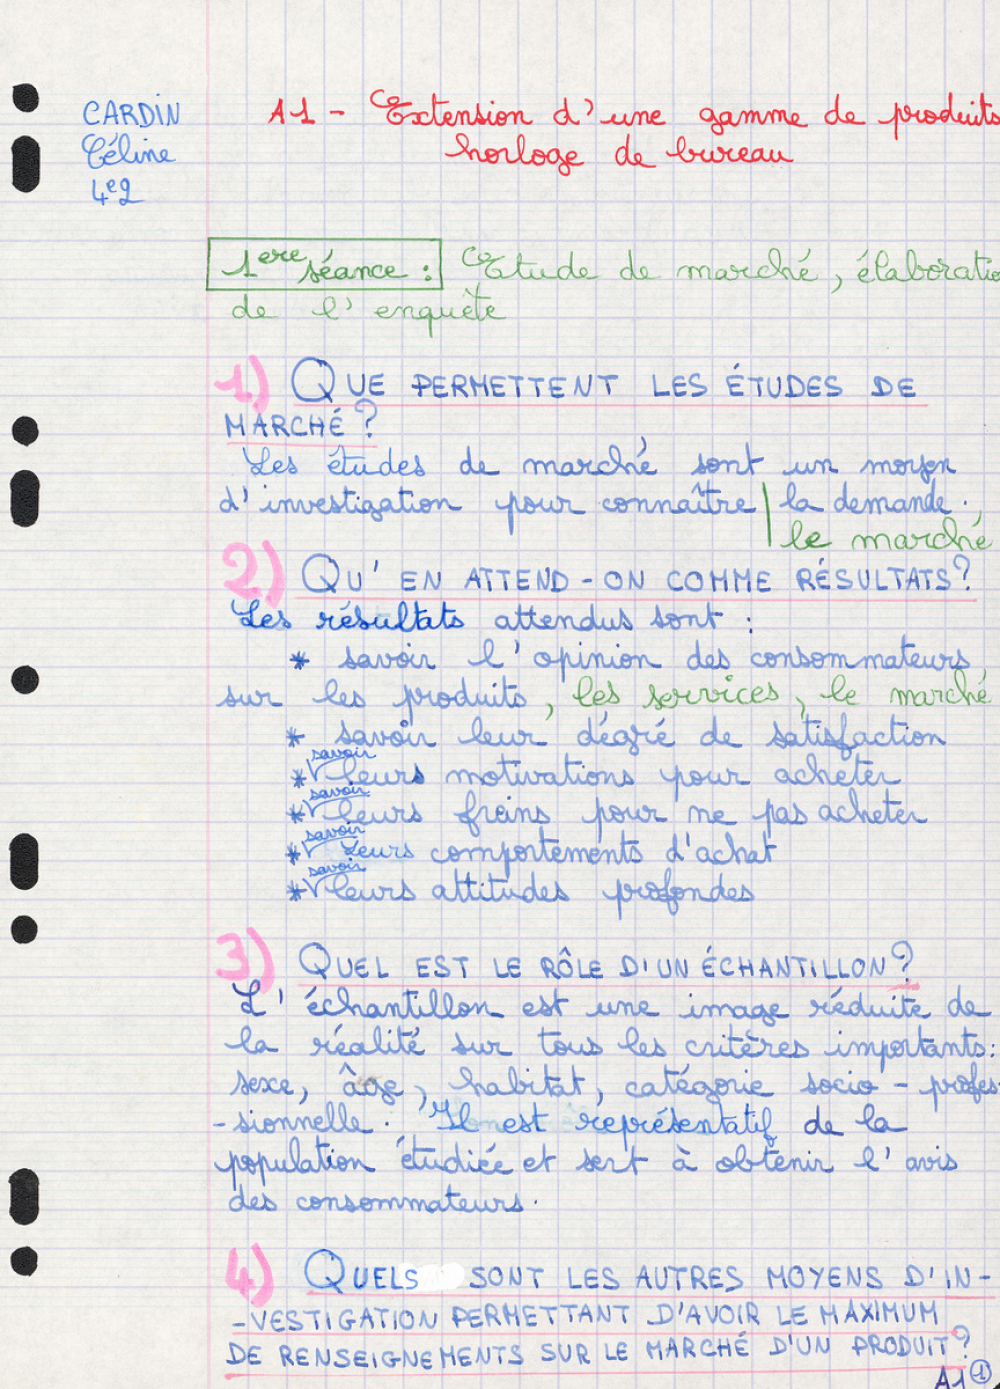 CARDIN
Céline
4e2
A1 - Extension d'une gamme de produits
horloge de bureau
1ere séance : Etude de marché, élaboratio
de l'enquête
1) QUE PERMETTENT LES ÉTUDES DE
MARCHÉ ?
Les études de marché sont un moyen
d'investigation pour connaître | la demande.
le marché
2) QU'EN ATTEND-ON COMME RÉSULTATS ?
Les résultats attendus sont :
* savoir l'opinion des consommateurs
sur les produits, les services, le marché
* savoir leur dégré de satisfaction
* savoir leurs motivations pour acheter
* savoir leurs freins pour ne pas acheter
* savoir leurs comportements d'achat
* savoir leurs attitudes profondes
3) QUEL EST LE RÔLE D'UN ÉCHANTILLON ?
L'échantillon est une image réduite de
la réalité sur tous les critères importants :
sexe, âge, habitat, catégorie socio-profes-
-sionnelle. Il est représentatif de la
population étudiée et sert à obtenir l'avis
des consommateurs.
4) QUELS SONT LES AUTRES MOYENS D'IN-
-VESTIGATION PERMETTANT D'AVOIR LE MAXIMUM
DE RENSEIGNEMENTS SUR LE MARCHÉ D'UN PRODUIT ?
A1 ①